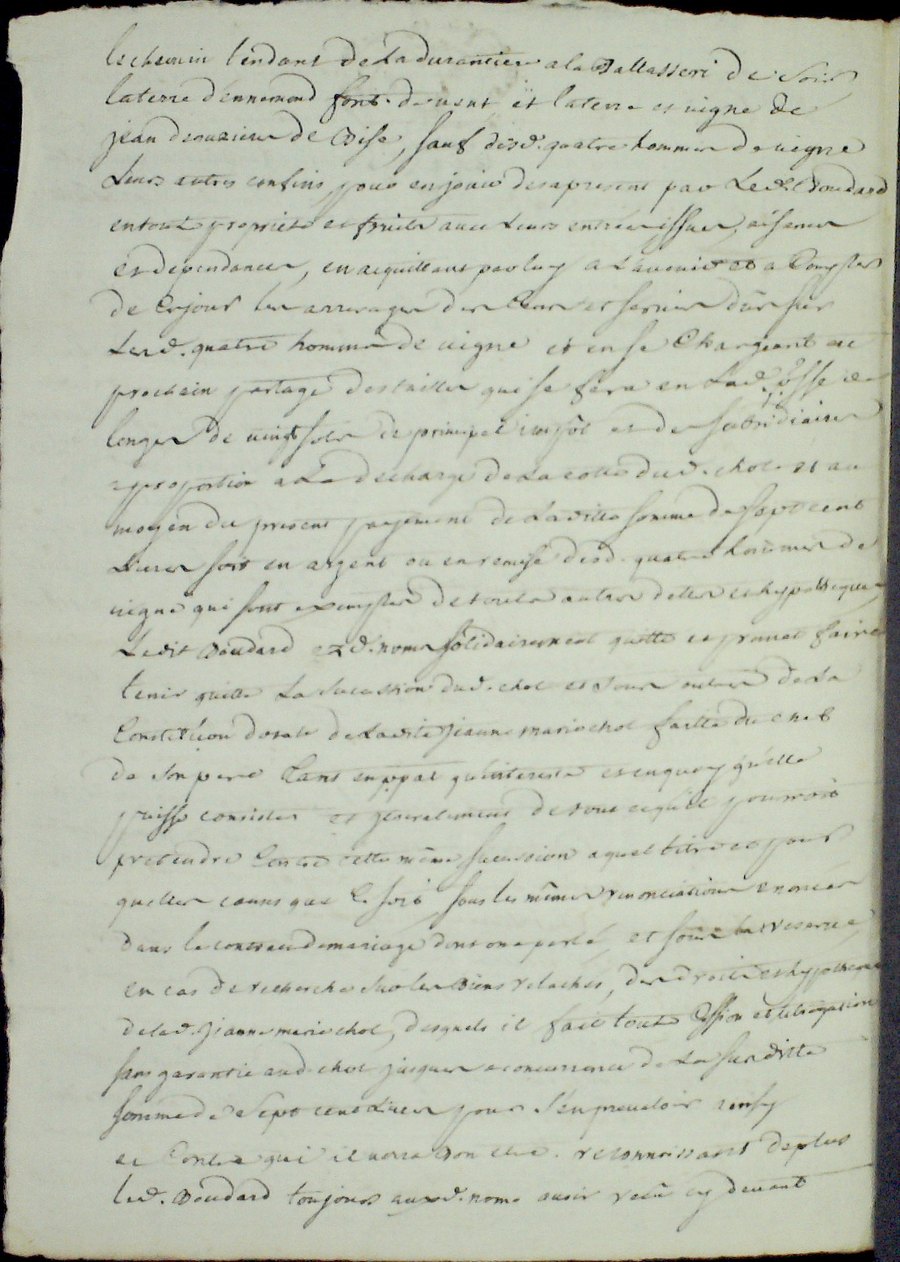 le chemin tendant de la durantiere a la Ballasseri de soir
la terre dennemond font de vent et la terre et vigne de
jean de bise, sauf desd. quatre hommes de vigne
Leurs autres confins, pour en jouir des apresent par Led. Boudard
en toute propriete et fruits avec Leurs entrées issues, aisances
et dependances, en acquittant par luy a L'avenir et a Compter
de Cejour les arrerages des Cens et servies dûs sur
Lesd. quatre hommes de vigne et en se Chargeant au
prochain partage des tailles qui se fera en Lad. de
longes de vingt sols de principal et de subsidiaires
a proportion a La decharge de La cotte dud. chol et au
moyen du present payement de La ditte somme de sept cent
Livres soit en argent ou en remise desd. quatre hommes de
vigne qui sont exemptes de toutes autres dettes et hypotheques
Ledit Boudard ezd. noms solidairement quitte et promet faire
tenir quitte La succession dud. chol et tous autres de La
Constitution dotale de Ladite Jeanne marie chol faitte du chef
de son pere tant en ppal qu'interests et en quoy qu'elle
puisse consister et generalement de tout ce qu'il pourroit
pretendre Contre cette même succession a quel titre et pour
quelles causes que Ce soit, sous les mêmes renonciations enoncées
dans le contract de mariage dont on a parlé, et sous la reserve
en cas de recherche sur les Biens relachés, des droits et hypotheques
de lad. Jeanne marie chol, desquels il fait toute cession et subrogation
sans garantie aud. chol jusques a concurrence de La susditte
somme de sept cent Livres pour s'en prevaloir ainsy
et Contre qui il verra bon etre. reconnoissant de plus
led. Boudard toujours auxd. noms avoir reçu cy devant